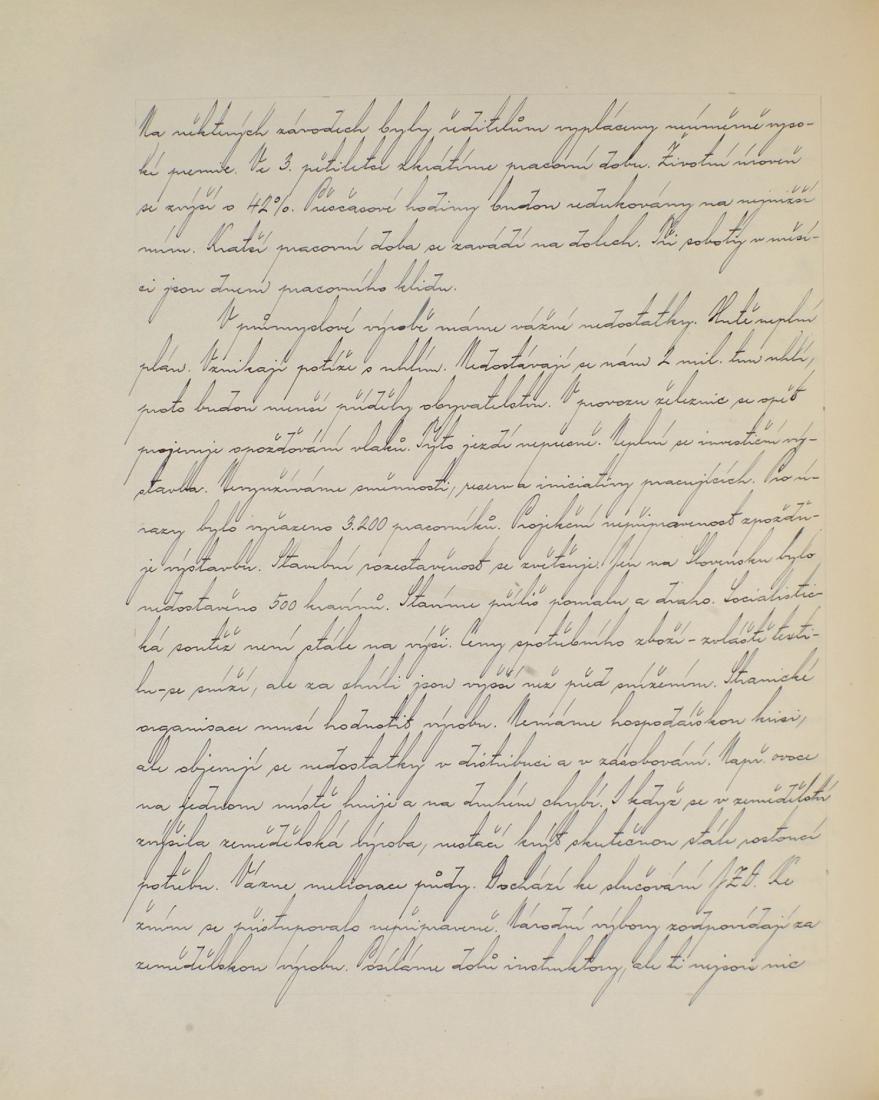 Na některých závodech byly ředitelům vypláceny neúměrně vyso-
ké premie. Ve 3. pětiletce zkrátíme pracovní dobu. Životní úroveň
se zvýší o 42%. Přesčasové hodiny budou redukovány na nejnižší
míru. Kratší pracovní doba se zavádí na dolech. Tři soboty v měsí-
ci jsou dnem pracovního klidu.
V průmyslové výrobě máme vážné nedostatky. Hutě neplní
plán. Vznikají potíže s uhlím. Nedostávají se nám 2 mil. tun uhlí,
proto budou menší příděly obyvatelstvu. V provozu železnic se opět
projevuje opožďování vlaků. Tyto jezdí nepřesně. Neplní se investiční vý-
stavba. Nevyužíváme směnnosti, reserv a iniciativy pracujících. Pro ú-
razy bylo vyřazeno 3.200 pracovníků. Projekční nepřipravenost zpožďu-
je výstavbu. Stavební rozestavěnost se zvětšuje. Jen na Slovensku bylo
nedostavěno 500 kravínů. Stavíme příliš pomalu a draho. Socialistic-
ká soutěž není stále na výši. Ceny spotřebního zboží - zvláště texti-
lu - se sníží, ale za chvíli jsou vyšší než před snížením. Stranické
organisace musí hodnotit výrobu. Nemáme hospodářskou krisi,
ale objevují se nedostatky v distribuci a v zásobování. Např. ovoce
na jednom místě hnije a na druhém chybí. I když se v zemědělství
zvýšila zemědělská výroba, nestačí krýt skutečnou stále rostoucí
potřebu. Vázne meliorace půdy. Dochází ke slučování JZD. Ke
žním se přistupovalo nepřipraveně. Národní výbory zodpovídají za
zemědělskou výrobu. Posíláme dolů instruktory, ale ti nejsou nic